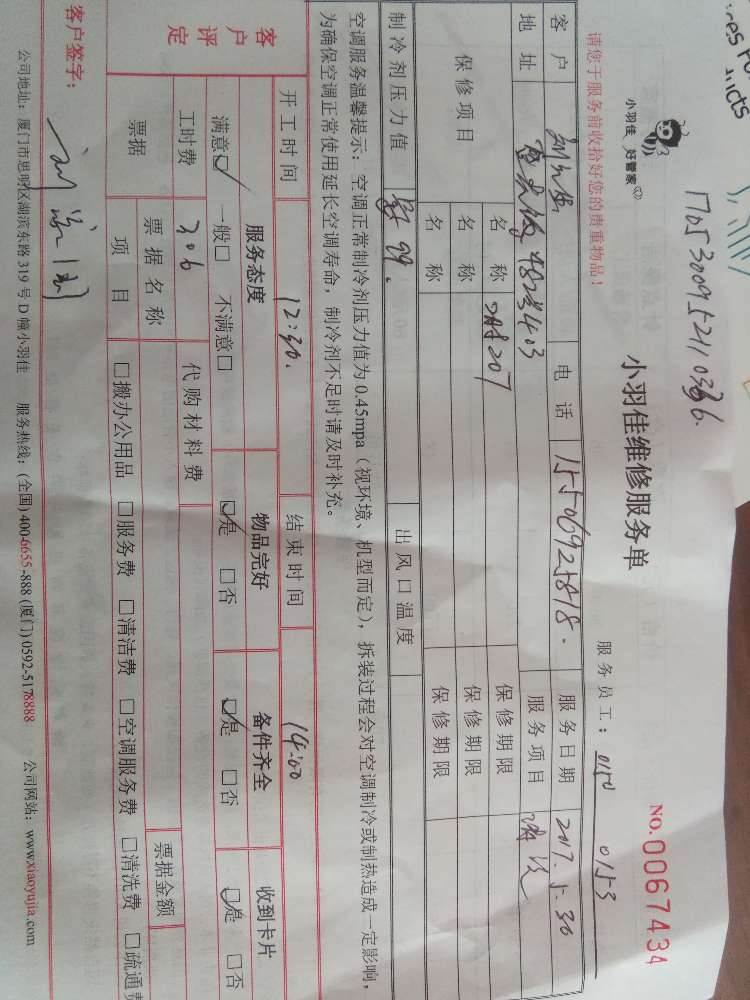 1705300952110366.
小羽佳 好管家
小羽佳维修服务单
NO.0067434
请您于服务前收拾好您的贵重物品！
服务员工： 0153
客户 电话 15506925818. 服务日期 2017.5.30
地址 48号403 服务项目 清洗
保修项目 名称 207 保修期限
名称 保修期限
名称 保修期限
制冷剂压力值 出风口温度
空调服务温馨提示：空调正常制冷剂压力值为0.45mpa（视环境、机型而定），拆装过程会对空调制冷或制热造成一定影响，
为确保空调正常使用延长空调寿命，制冷剂不足时请及时补充。
开工时间 12:30. 结束时间 14:00
客户评定 服务态度 物品完好 备件齐全 收到卡片
满意□ 一般□ 不满意□ □是 □否 □是 □否 □是 □否
工时费 206 代购材料费
票据 票据名称 票据金额
项目 □搬办公用品 □服务费 □清洁费 □空调服务费 □清洗费 □疏通费
客户签字：
公司地址：厦门市思明区湖滨东路319号D幢小羽佳 服务热线：(全国)400-6655-888 (厦门)0592-5178888 公司网站：www.xiaoyujia.com